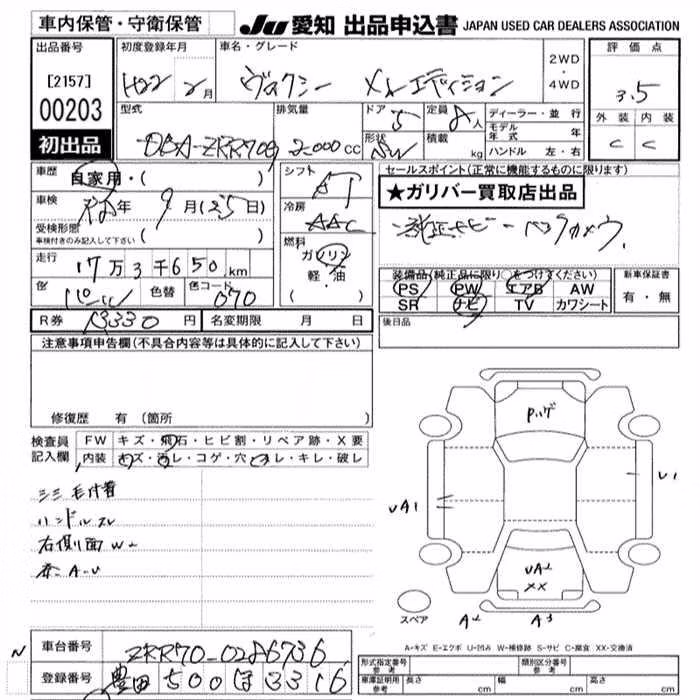 車内保管・守衛保管
JU 愛知 出品申込書 JAPAN USED CAR DEALERS ASSOCIATION
出品番号
[2157]
00203
初出品
初度登録年月
H22 2月
車名・グレード
ヴォクシー X Lエディション
2WD
・
4WD
評価点
3.5
外装 内装
C C
型式
DBA-ZRR70G
排気量
2000cc
ドア
5
形状
SW
定員
8人
積載
kg
ディーラー・並行
モデル年式 年
ハンドル 左・右
車歴
自家用・( )
車検
年 9月(25日)
受検形態
車検付きのみ記入して下さい ( )
走行
17万3千650km
色
色替
色コード
070
シフト
AT
冷房
AAC
燃料
ガソリン
軽・油
( ・ )
セールスポイント(正常に機能するものに限ります)
★ガリバー買取店出品
純正ナビ バックカメラ
装備品(純正品に限り○をつけてください)
PS PW エアB AW
SR ナビ TV カワシート
新車保証書
有・無
後日品
R券 13330円
名変期限 月 日
注意事項申告欄(不具合内容等は具体的に記入して下さい)
修復歴 有(箇所 )
検査員
記入欄
FW キズ・飛石・ヒビ割・リペア跡・X要
内装 キズ・汚レ・コゲ・穴・スレ・キレ・破レ
シミ 毛付着
ハンドルスレ
右側面 W2
A-U
Pハゲ
UA1
U1
UA2
XX
スペア
A2 A3
A-キズ E-エクボ U-凹み W-補修跡 S-サビ C-腐食 XX-交換済
N
車台番号 ZRR70-0286736
登録番号 豊田 500 ほ 3316
形式指定番号
参考
類別区分番号
参考
車庫証明用
参考
長さ cm 幅 cm 高さ cm